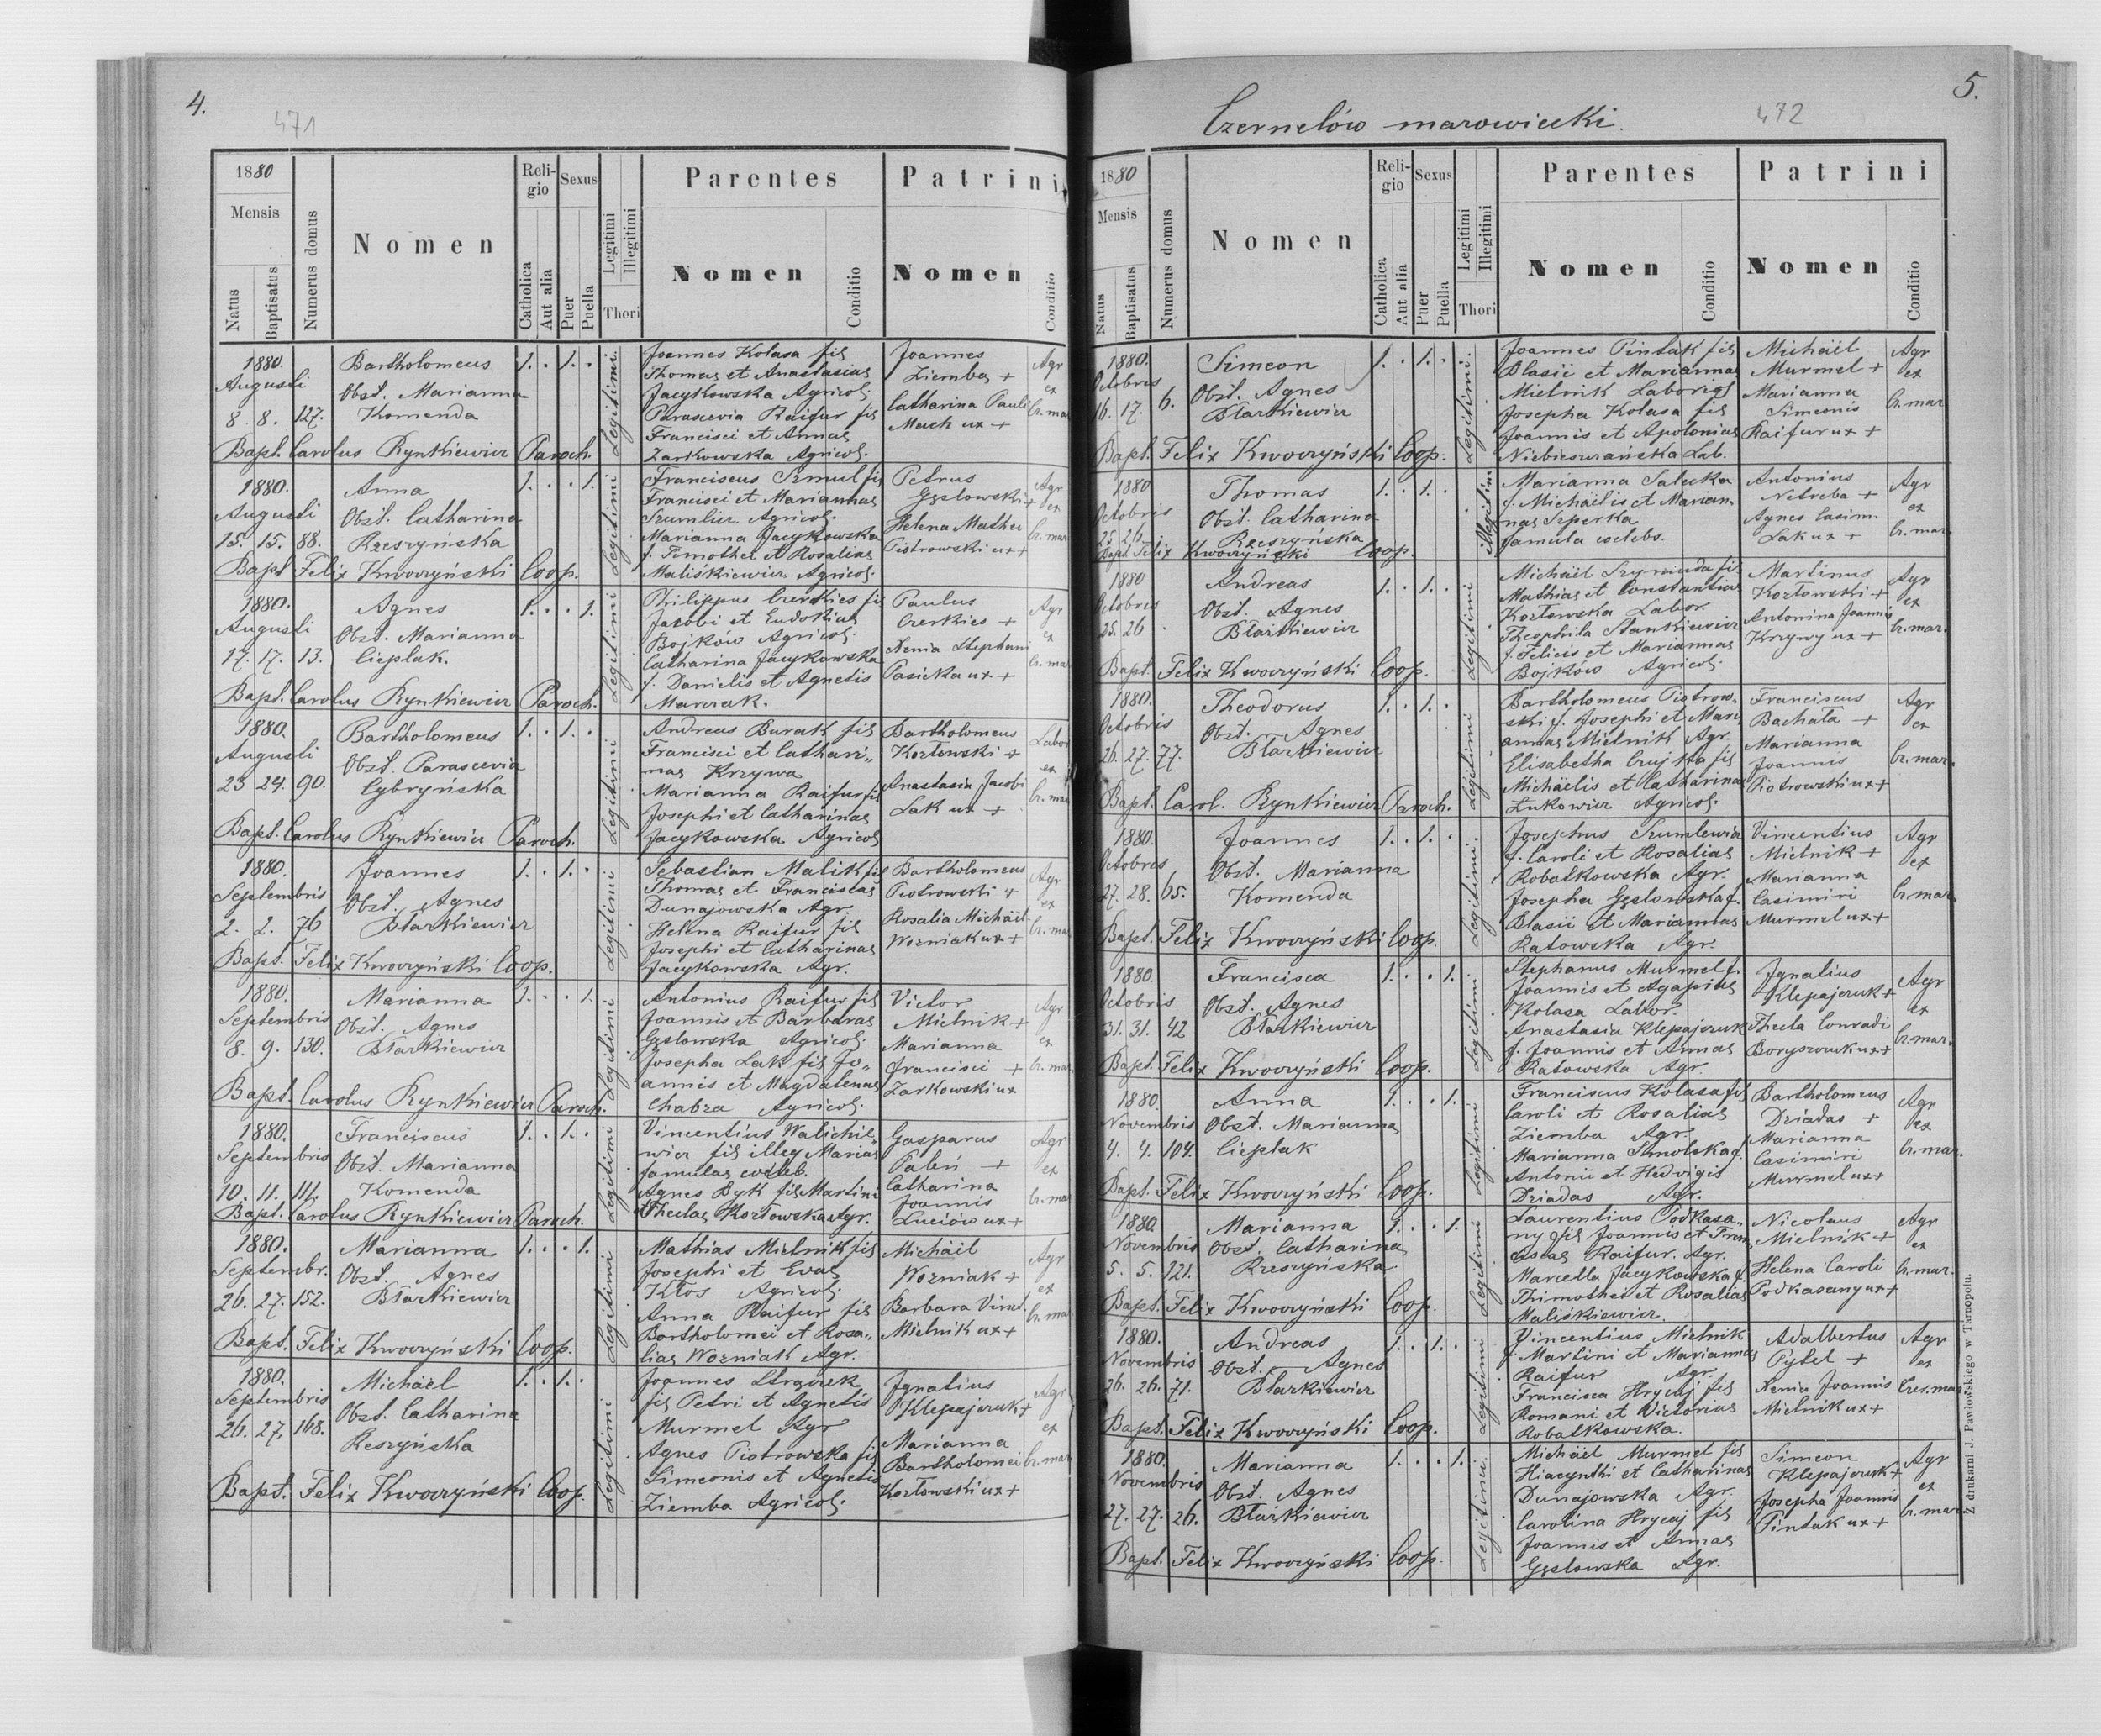 4.
471
1880
Mensis
Natus
Baptisatus
Numerus domus
Nomen
Religio
Catholica
Aut alia
Sexus
Puer
Puella
Legitimi
Illegitimi
Thori
Parentes
Nomen
Conditio
Patrini
Nomen
Conditio
1880.
Augusti
8. 8. 127.
Bartholomeus
Obst. Marianna
Komenda
1. . 1. .
Legitimi.
Joannes Kolasa fil
Thomas et Anastasias
Jacykowska Agricol.
Parascevia Raifur fil
Francisci et Annas
Zarkowska Agricol.
Joannes
Ziemba +
Catharina Pauli
Mach ux +
Agr
ex
Cr. mar
Bapt. Carolus Rynkiewicz Paroch.
1880.
Augusti
15. 15. 88.
Anna
Obst. Catharina
Rzeszyńska
1. . . 1.
Legitimi
Franciscus Szmul fil
Francisci et Mariannas
Szumlicz Agricol.
Marianna Jacykowska
f. Timothei et Rosalias
Maliśkiewicz Agricol.
Petrus
Gęslowski +
Helena Mathei
Piotrowski ux +
Agr
ex
Cr. mar
Bapt Felix Kwoczyński Coop.
1880.
Augusti
17. 17. 13.
Agnes
Obst. Marianna
Cieplak.
1. . . 1.
Legitimi
Philippus Czerkies fil
Jacobi et Eudokias
Bojków Agricol.
Catharina Jacykowska
f. Danielis et Agnetis
Marczak.
Paulus
Czerkies +
Xenia Stephani
Pasieka ux +
Agr
ex
Cr. mar
Bapt. Carolus Rynkiewicz Paroch.
1880.
Augusti
23 24. 90.
Bartholomeus
Obst. Parascevia
Cybryńska
1. . 1. .
Legitimi
Andreas Burak fil
Francisci et Cathari„
nas Krzywa
Marianna Raifur fil
Josephi et Catharinas
Jacykowska Agricol
Bartholomeus
Kozłowski +
Anastasia Jacobi
Lak ux +
Labor
ex
Cr. mar
Bapt. Carolus Rynkiewicz Paroch.
1880.
Septembris
2. 2. 76
Joannes
Obst. Agnes
Błarkiewicz
1. . 1. .
Legitimi
Sebastian Malik fil
Thomas et Franciscas
Dunajowska Agr.
Helena Raifur fil
Josephi et Catharinas
Jacykowska Agr.
Bartholomeus
Piotrowski +
Rosalia Michäil
Wozniak ux +
Agr
ex
Cr. mar
Bapt. Felix Kwoczyński Coop.
1880.
Septembris
8. 9. 130.
Marianna
Obst. Agnes
Błarkiewicz
1. . . 1.
Legitimi
Antonius Raifur fil
Joannis et Barbaras
Gęslowska Agricol.
Josepha Lak fil Jo„
annis et Magdalenas
Chabza Agricol.
Victor
Mielnik +
Marianna
Francisci +
Zarkowski ux
Agr
ex
Cr. mar
Bapt. Carolus Rynkiewicz Paroch.
1880.
Septembris
10. 11. 111.
Franciscus
Obst. Marianna
Komenda
1. . 1. .
Legitimi
Vincentius Walichie„
wicz fil illeg Marias
famulas coeleb.
Agnes Byk fil Martini
Theclas Kozłowska Agr.
Gasparus
Paleń +
Catharina
Joannis
Luciów ux +
Agr
ex
Cr. mar
Bapt. Carolus Rynkiewicz Paroch.
1880.
Septembr.
26. 27. 152.
Marianna
Obst. Agnes
Błarkiewicz
1. . . 1.
Legitimi
Mathias Mielnik fil
Josephi et Evas
Kłos Agricol.
Anna Raifur fil
Bartholomei et Rosa„
lias Wozniak Agr.
Michäil
Wozniak +
Barbara Vinct.
Mielnik ux +
Agr
ex
Cr. mar
Bapt. Felix Kwoczyński Coop.
1880.
Septembris
26. 27. 168.
Michäel
Obst. Catharina
Reszyńska
1. . 1. .
Legitimi
Joannes Strązek
fil Petri et Agnetis
Murmel Agr
Agnes Piotrowska fil
Simeonis et Agnetis
Ziemba Agricol.
Ignatius
Klepajczuk +
Marianna
Bartholomei
Kozłowski ux +
Agr
ex
Cr. mar
Bapt. Felix Kwoczyński Coop.
5.
472
Czernelów mazowiecki.
1880
Mensis
Natus
Baptisatus
Numerus domus
Nomen
Religio
Catholica
Aut alia
Sexus
Puer
Puella
Legitimi
Illegitimi
Thori
Parentes
Nomen
Conditio
Patrini
Nomen
Conditio
1880.
Octobris
16. 17. 6.
Simeon
Obst. Agnes
Błarkiewicz
1. . 1. .
Legitimi.
Joannes Pintak fil
Blasii et Mariannas
Mielnik Laborios
Josepha Kolasa fil
Joannis et Apolonias
Niebieszczańska Lab.
Michäel
Murmel +
Marianna
Simeonis
Raifur ux +
Agr
ex
Cr. mar
Bapt. Felix Kwoczyński Coop.
1880
Octobris
25 26
Thomas
Obst. Catharina
Rzeszyńska
1. . 1. .
illegitim
Marianna Salucka
f. Michäelis et Marian
nas Szperka
famula coelebs.
Antonius
Netreba +
Agnes Casim.
Lak ux +
Agr
ex
Cr. mar
Bapt Felix Kwoczyński Coop.
1880
Octobris
25. 26
Andreas
Obst. Agnes
Błarkiewicz
1. . 1. .
Legitimi
Michäil Szymuda fi
Mathias et Constantias
Kozłowska Labor.
Theophila Stankiewicz
f. Felicis et Mariannas
Bojków Agricol.
Martinus
Kozłowski +
Antonina Joannis
Krzywy ux +
Agr
ex
Cr. mar.
Bapt. Felix Kwoczyński Coop.
1880.
Octobris
26. 27. 77.
Theodorus
Obst. Agnes
Błarkiewicz
1. . 1. .
Legitimi
Bartholomeus Piotrow-
ski f. Josephi et Mari
annas Mielnik Agr.
Elisabetha Czujska fil
Michäelis et Catharinas
Lukowicz Agricol.
Franciscus
Bachała +
Marianna
Joannis
Piotrowski ux +
Agr
ex
Cr. mar.
Bapt. Carol. Rynkiewicz Paroch.
1880.
Octobris
27. 28. 65.
Joannes
Obst. Marianna
Komenda
1. . 1. .
Legitimi.
Josephus Szumlewicz
f. Caroli et Rosalias
Robatkowska Agr.
Josepha Gęslowska f.
Blasii et Mariannas
Ratowska Agr.
Vincentius
Mielnik +
Marianna
Casimiri
Murmel ux +
Agr
ex
Cr. mar.
Bapt. Felix Kwoczyński Coop.
1880.
Octobris
31. 31. 42
Francisca
Obst. Agnes
Błarkiewicz
1. . . 1.
Legitimi
Stephanus Murmel f.
Joannis et Agapitas
Kolasa Labor.
Anastasia Klepajczuk
f. Joannis et Annas
Ratowska Agr.
Ignatius
Klepajczuk +
Thecla Conradi
Boryszczuk ux +
Agr
ex
Cr. mar.
Bapt. Felix Kwoczyński Coop.
1880.
Novembris
4. 4. 104.
Anna
Obst. Marianna
Cieplak
1. . . 1.
Legitimi
Franciscus Kolasa fi
Caroli et Rosalias
Ziemba Agr.
Marianna Smolska f.
Antonii et Hedvigis
Dziadas Agr.
Bartholomeus
Dziadas +
Marianna
Casimiri
Murmel ux +
Agr
ex
Cr. mar.
Bapt. Felix Kwoczyński Coop.
1880.
Novembris
5. 5. 121.
Marianna
Obst. Catharina
Rzeszyńska
1. . . 1.
Legitimi
Laurentius Podkasa„
ny fil Joannis et Fran
ciscas Raifur. Agr.
Marcella Jacykowska f.
Thimothei et Rosalias
Maliśkiewicz.
Nicolaus
Mielnik +
Helena Caroli
Podkasany ux +
Agr
ex
Cr. mar.
Bapt. Felix Kwoczyński Coop.
1880.
Novembris
26. 26. 71.
Andreas
Obst. Agnes
Błarkiewicz
1. . 1. .
Legitimi
Vincentius Mielnik
f. Martini et Mariannas
Raifur Agr.
Francisca Hrycaj fil
Romani et Victorias
Robatkowska.
Adalbertus
Pytel +
Xenia Joannis
Mielnik ux +
Agr
ex
Czer. mar
Bapt. Felix Kwoczyński Coop.
1880.
Novembris
27. 27. 26.
Marianna
Obst. Agnes
Błarkiewicz
1. . . 1.
Legitimi.
Michäel Murmel fil
Hiacynthi et Catharinas
Dunajowska Agr.
Carolina Hrycaj fil
Joannis et Annas
Gęslowska Agr.
Simeon
Klepajczuk +
Josepha Joannis
Pintak ux +
Agr
ex
Cr. mar
Bapt. Felix Kwoczyński Coop.
Z drukarni J. Pawłowskiego w Tarnopolu.